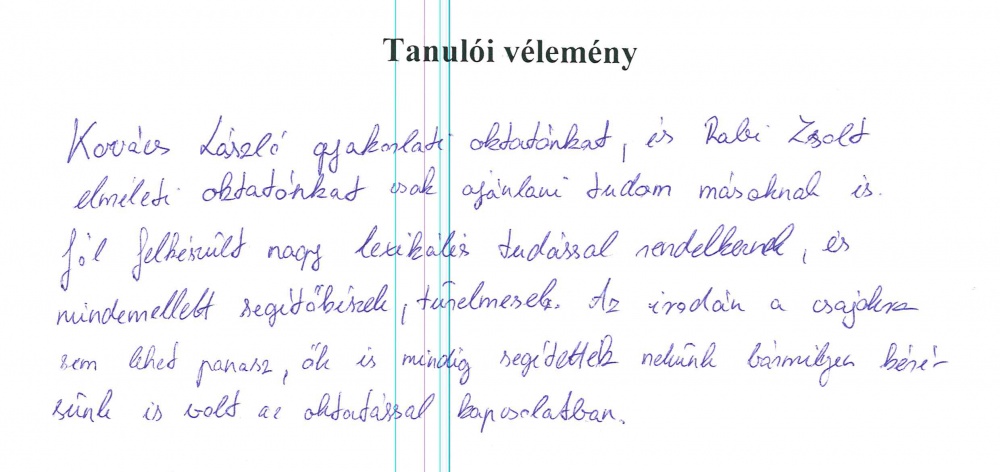 Tanulói vélemény
Kovács László gyakorlati oktatónkat, és Rabi Zsolt
elméleti oktatónkat csak ajánlani tudom másoknak is.
Jól felkészült nagy lexikális tudással rendelkeznek, és
mindemellett segítőkészek, türelmesek. Az irodán a csajokra
sem lehet panasz, ők is mindig segítettek nekünk bármilyen kéré-
sünk is volt az oktatással kapcsolatban.